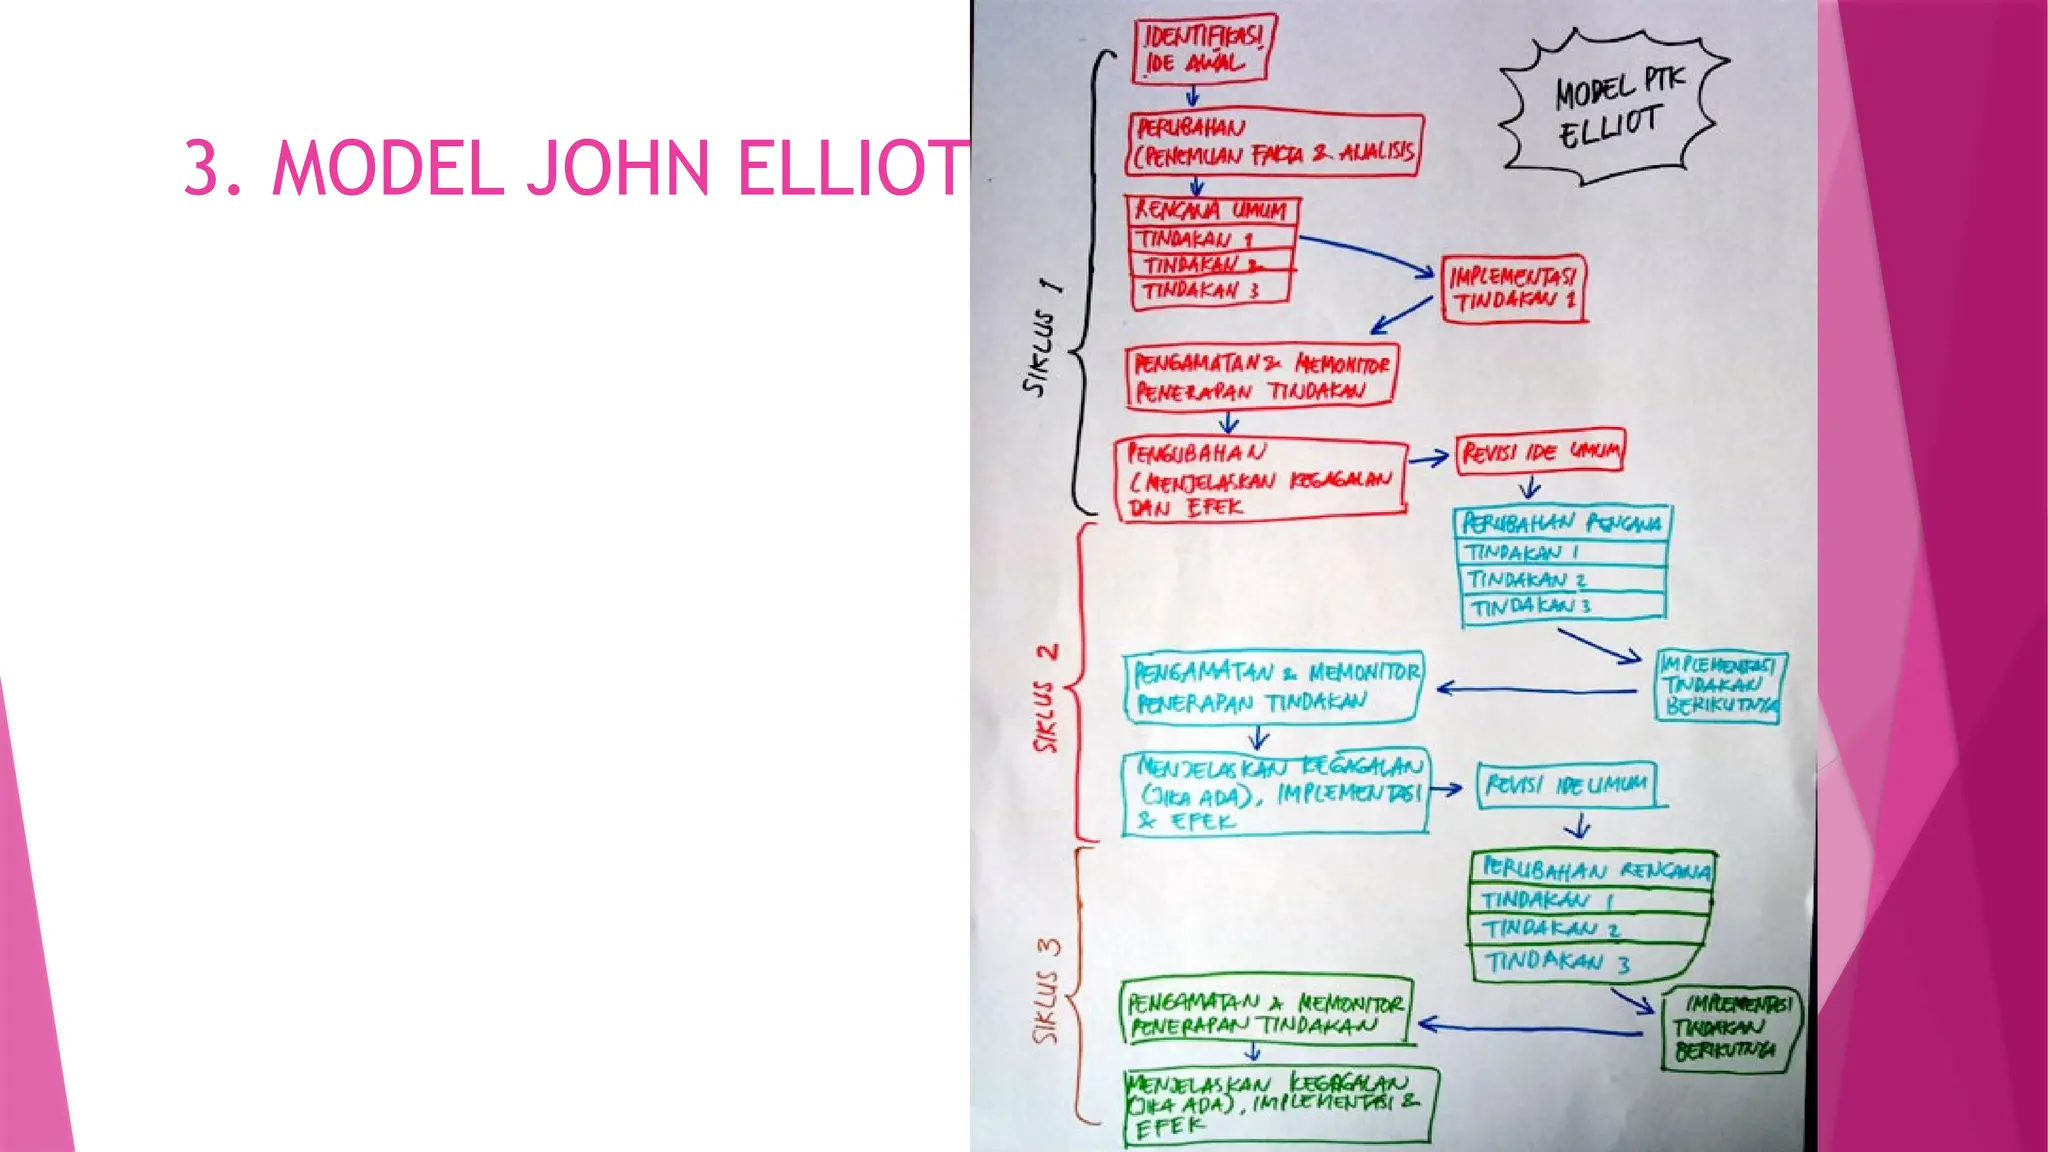 3. MODEL JOHN ELLIOT
MODEL PTK
ELLIOT
SIKLUS 1
IDENTIFIKASI
IDE AWAL
PERUBAHAN
(PENEMUAN FAKTA & ANALISIS
RENCANA UMUM
TINDAKAN 1
TINDAKAN 2
TINDAKAN 3
IMPLEMENTASI
TINDAKAN 1
PENGAMATAN & MEMONITOR
PENERAPAN TINDAKAN
PENGUBAHAN
(MENJELASKAN KEGAGALAN
DAN EFEK
REVISI IDE UMUM
SIKLUS 2
PERUBAHAN RENCANA
TINDAKAN 1
TINDAKAN 2
TINDAKAN 3
IMPLEMENTASI
TINDAKAN
BERIKUTNYA
PENGAMATAN & MEMONITOR
PENERAPAN TINDAKAN
MENJELASKAN KEGAGALAN
(JIKA ADA), IMPLEMENTASI
& EFEK
REVISI IDE UMUM
SIKLUS 3
PERUBAHAN RENCANA
TINDAKAN 1
TINDAKAN 2
TINDAKAN 3
IMPLEMENTASI
TINDAKAN
BERIKUTNYA
PENGAMATAN & MEMONITOR
PENERAPAN TINDAKAN
MENJELASKAN KEGAGALAN
(JIKA ADA), IMPLEMENTASI &
EFEK